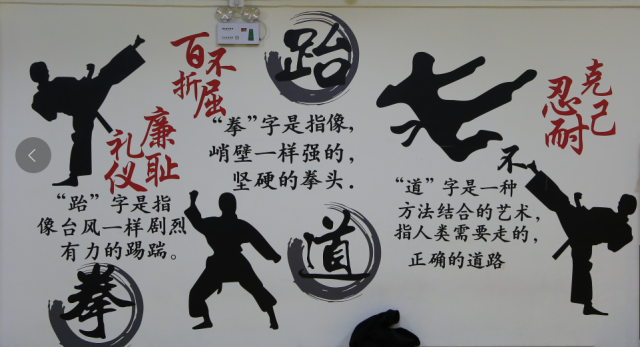 百折
不屈
礼仪
廉耻
跆
“跆”字是指
像台风一样剧烈
有力的踢踹。
拳
“拳”字是指像,
峭壁一样强的,
坚硬的拳头.
道
“道”字是一种
方法结合的艺术,
指人类需要走的,
正确的道路
克己
忍耐
不